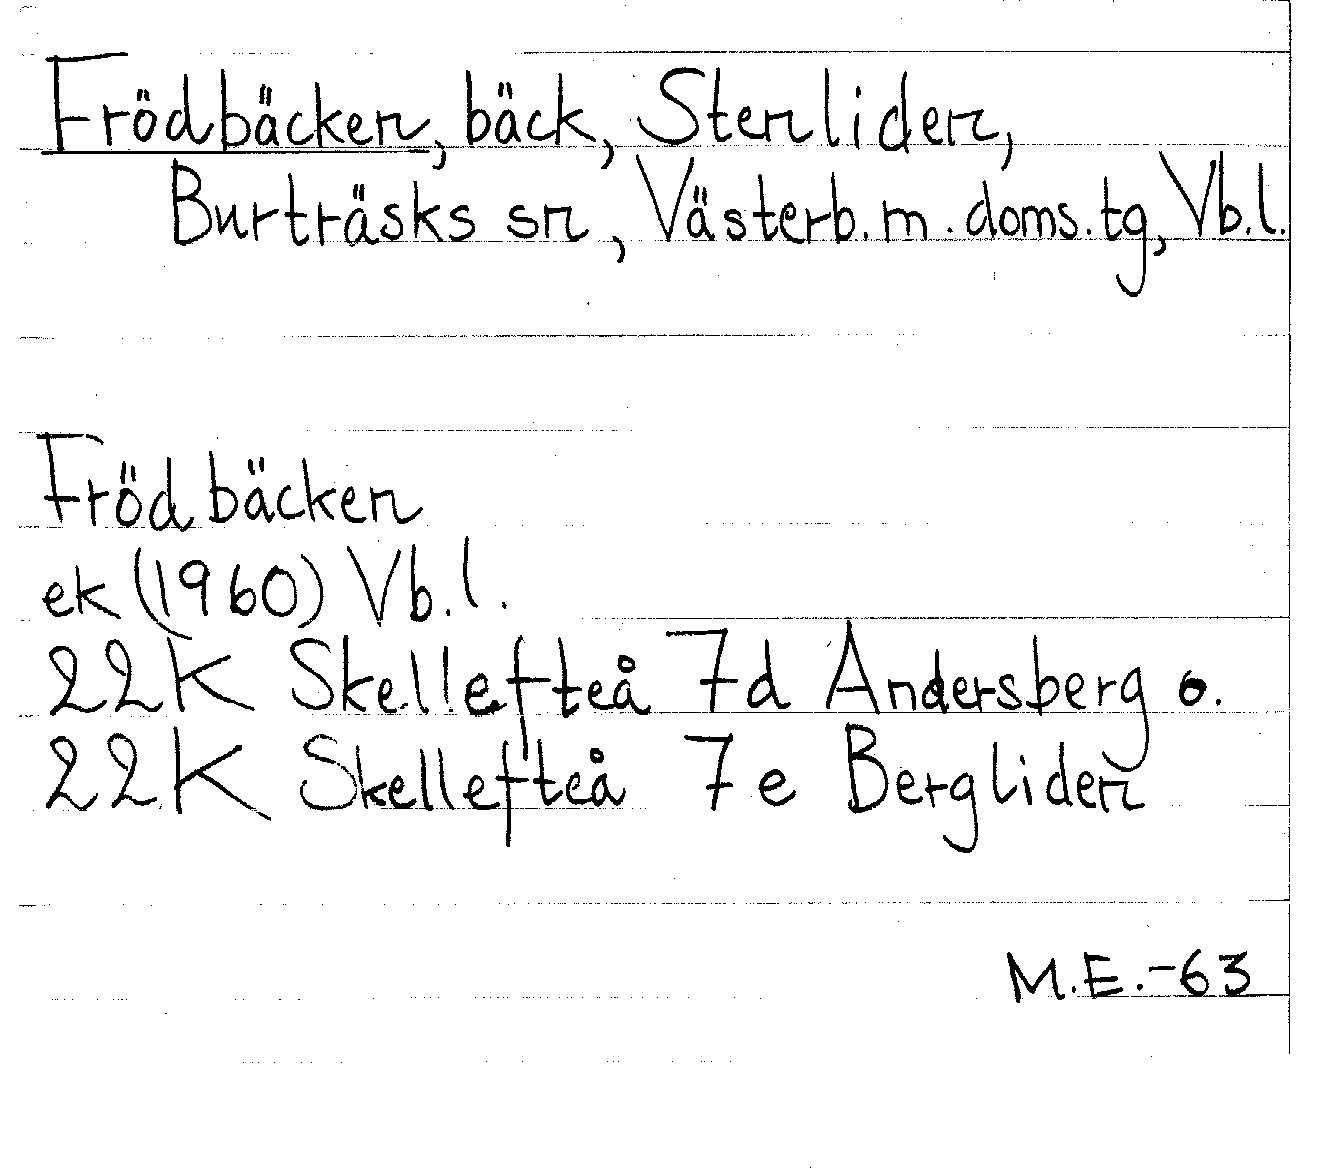 Frödbäcken, bäck, Stenliden,
Burträsks sn, Västerb. m. doms. tg, Vb. l.
Frödbäcken
ek (1960) Vb. l.
22K Skellefteå 7d Andersberg o.
22K Skellefteå 7e Bergliden
M.E.-63